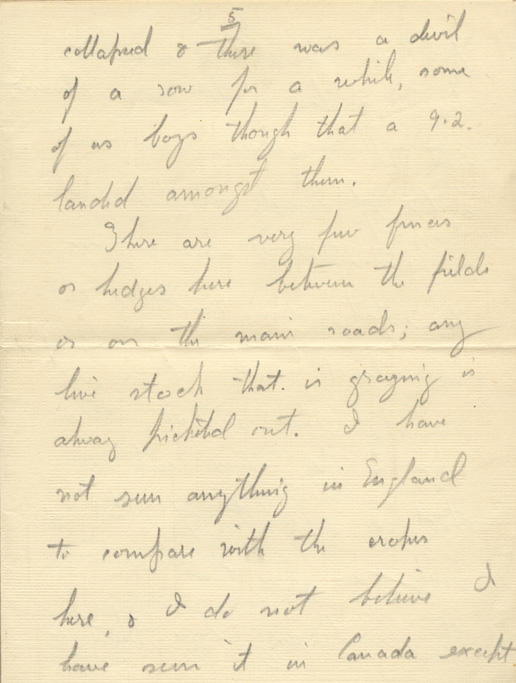 5
collapsed & there was a devil
of a row for a while, some
of us boys though that a 9.2.
landed amongst them.
There are very few fences
or hedges here between the fields
or on the main roads; any
live stock that is grazing is
alway picketed out. I have
not seen anything in England
to compare with the crops
here, & I do not believe I
have seen it in Canada except